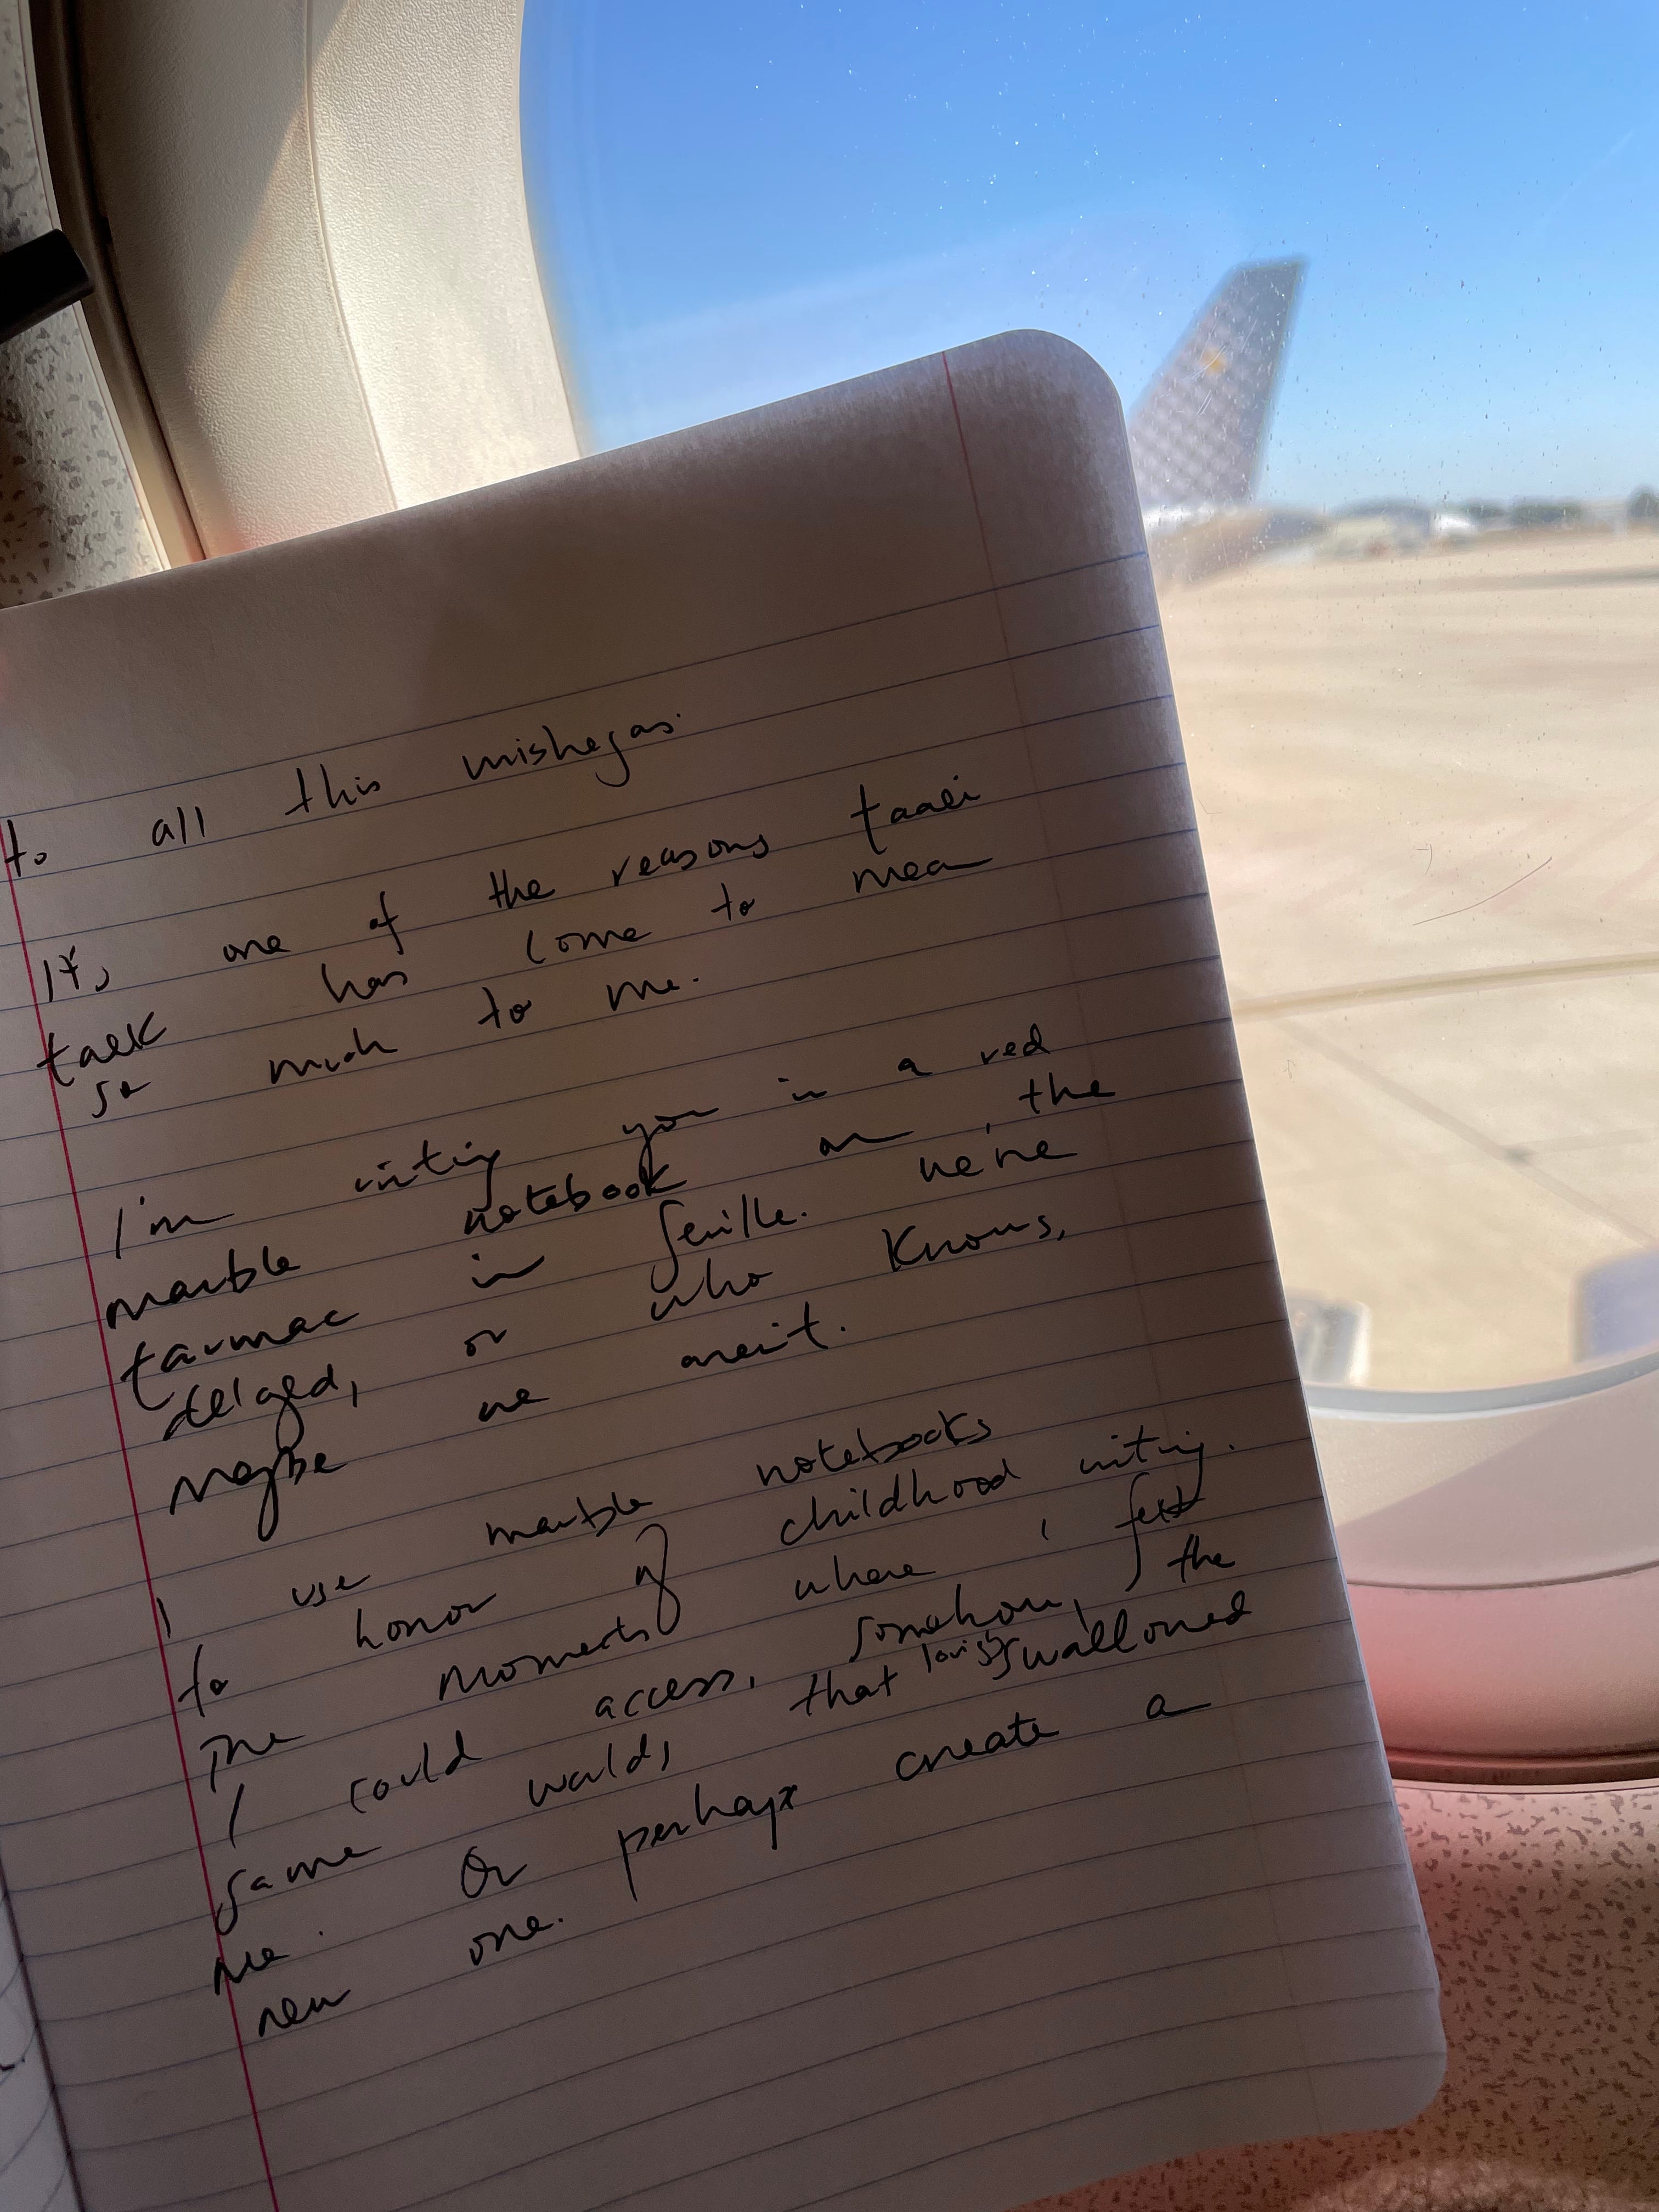 to all this mishegas.
It's one of the reasons
talk has come to mean
so much to me.
I'm writing you in a red
marble notebook on the
tarmac in Seville. We're
delayed, or who knows,
maybe we aren't.
I use marble notebooks
to honor my childhood writing.
The moments where I felt
I could access, somehow, the
same world, that lovingly swallowed
me. Or perhaps create a
new one.